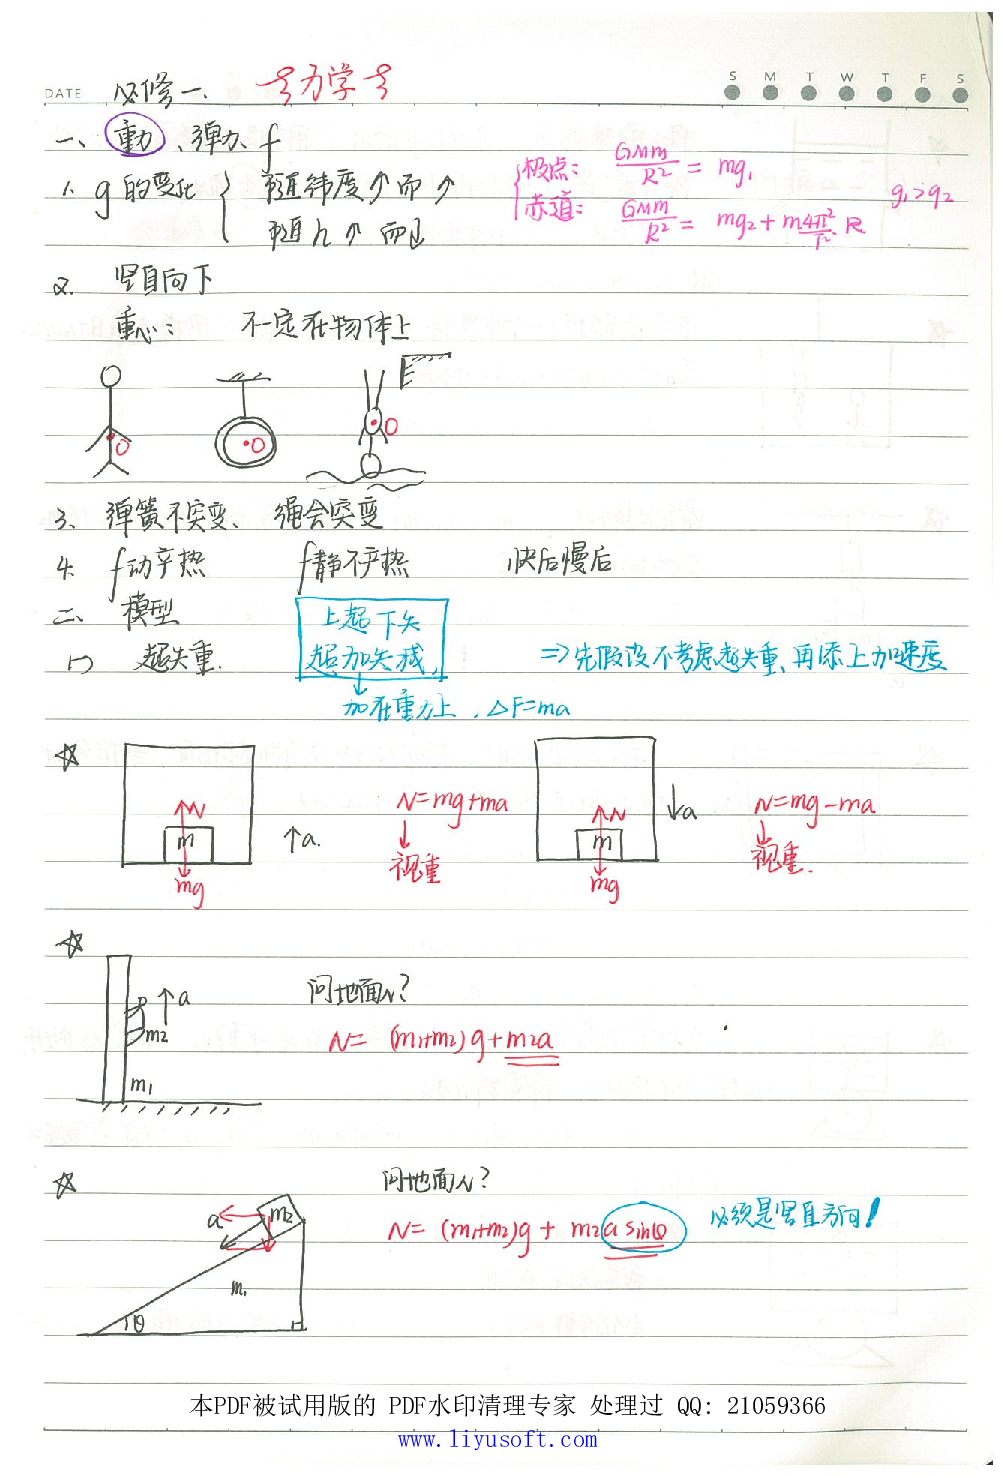 DATE 必修一. 力学 S M T W T F S
一、重力、弹力、f
1. g的变化 { 随纬度↑而↑ { 极点: GMm/R² = mg₁ g₁>g₂
随h↑而↓ 赤道: GMm/R² = mg₂ + m4π²/T² R
2. 竖直向下
重心: 不一定在物体上
O O O
3、弹簧不突变、绳会突变
4. f动产热 f静不产热 快后慢后
二、模型 上超下失
1) 超失重. 超加失减, ⇒先假设不考虑超失重、再添上加速度
加在重力上, △F=ma
☆ N m mg ↑a. N=mg+ma 视重 N m mg ↓a N=mg-ma 视重.
☆ ↑a m₂ m₁ 问地面N?
N= (m₁+m₂)g+m₂a
☆ 问地面N?
a m₂ m₁ θ N= (m₁+m₂)g + m₂a sinθ 必须是竖直方向!
本PDF被试用版的 PDF水印清理专家 处理过 QQ: 21059366
www.liyusoft.com